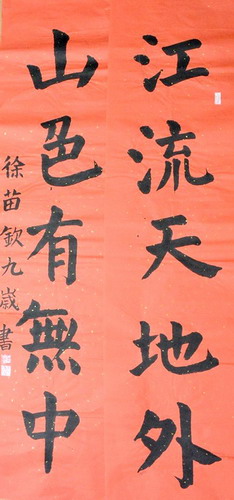 江流天地外
山色有無中
徐苗欽九歲書